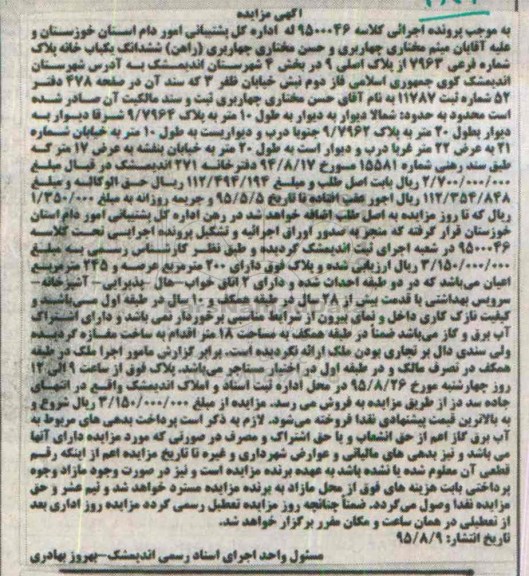 آگهی مزایده
به موجب پرونده اجرائی کلاسه ۹۵۰۰۰۴۶ له اداره کل پشتیبانی امور دام استان خوزستان و
علیه آقایان میثم مختاری چهاربری و حسن مختاری چهاربری (راهن) ششدانگ یکباب خانه پلاک
شماره فرعی ۷۹۶۳ از پلاک اصلی ۹ در بخش ۴ شهرستان اندیمشک به آدرس شهرستان
اندیمشک کوی جمهوری اسلامی فاز دوم نبش خیابان ظفر ۳ که سند آن در صفحه ۴۷۸ دفتر
۵۲ شماره ثبت ۱۱۷۸۷ به نام آقای حسن مختاری چهاربری ثبت و سند مالکیت آن صادر شده
است محدود به حدود: شمالا دیوار به دیوار به طول ۱۰ متر به پلاک ۹/۷۹۶۴ شرقا دیوار به
دیوار بطول ۲۰ متر به پلاک ۹/۷۹۶۲ جنوبا درب و دیواریست به طول ۱۰ متر به خیابان شماره
۲۱ به عرض ۲۲ متر غربا درب و دیوار است به طول ۲۰ متر به خیابان بنفشه به عرض ۱۷ متر که
طبق سند رهنی شماره ۱۵۵۸۱ مورخ ۹۴/۸/۱۷ دفترخانه ۲۷۱ اندیمشک در قبال مبلغ
۲/۷۰۰/۰۰۰/۰۰۰ ریال بابت اصل طلب و مبلغ ۱۱۲/۴۹۴/۱۹۴ ریال حق الوکاله و مبلغ
۱۱۲/۳۵۴/۸۴۸ ریال اجور عقب افتاده تا تاریخ ۹۵/۵/۵ و جریمه روزانه به مبلغ ۱/۳۵۰/۰۰۰
ریال که تا روز مزایده به اصل طلب اضافه خواهد شد در رهن اداره کل پشتیبانی امور دام استان
خوزستان قرار گرفته که منجر به صدور اوراق اجرائیه و تشکیل پرونده اجرایی تحت کلاسه
۹۵۰۰۰۴۶ در شعبه اجرای ثبت اندیمشک گردیده و طبق نظر کارشناس رسمی به مبلغ
۳/۱۵۰/۰۰۰/۰۰۰ ریال ارزیابی شده و پلاک فوق دارای ۲۰۰ مترمربع عرصه و ۲۴۵ مترمربع
اعیان می‌باشد که در دو طبقه احداث شده و دارای ۲ اتاق خواب-هال- پذیرایی- آشپزخانه-
سرویس بهداشتی با قدمت بیش از ۲۸ سال در طبقه همکف و ۱۰ سال در طبقه اول می‌باشد و
کیفیت نازک کاری داخل و نمای بیرون از شرایط مناسبی برخوردار نمی باشد و دارای اشتراک
آب برق و گاز می‌باشد ضمناً در طبقه همکف به مساحت ۱۸ متر اقدام به ساخت مغازه گردیده
ولی سندی دال بر تجاری بودن ملک ارائه نگردیده است. برابر گزارش مامور اجرا ملک در طبقه
همکف در تصرف مالک و در طبقه اول در اختیار مستاجر می‌باشد. پلاک فوق از ساعت ۹ الی ۱۲
روز چهارشنبه مورخ ۹۵/۸/۲۶ در محل اداره ثبت اسناد و املاک اندیمشک واقع در انتهای
جاده سد دز از طریق مزایده به فروش می رسد. مزایده از مبلغ ۳/۱۵۰/۰۰۰/۰۰۰ ریال شروع و
به بالاترین قیمت پیشنهادی نقدا فروخته می‌شود. لازم به ذکر است پرداخت بدهی های مربوط به
آب برق گاز اعم از حق انشعاب و یا حق اشتراک و مصرف در صورتی که مورد مزایده دارای آنها
می باشد و نیز بدهی های مالیاتی و عوارض شهرداری و غیره تا تاریخ مزایده اعم از اینکه رقم
قطعی آن معلوم شده یا نشده باشد به عهده برنده مزایده است و نیز در صورت وجود مازاد وجوه
پرداختی بابت هزینه های فوق از محل مازاد به برنده مزایده مسترد خواهد شد و نیم عشر و حق
مزایده نقدا وصول می‌گردد. ضمناً چنانچه روز مزایده تعطیل رسمی گردد مزایده روز اداری بعد
از تعطیلی در همان ساعت و مکان مقرر برگزار خواهد شد.
تاریخ انتشار: ۹۵/۸/۹
مسئول واحد اجرای اسناد رسمی اندیمشک-بهروز بهادری